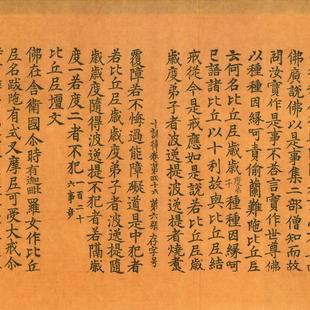 佛廣說佛以是事集二部僧知而故
問汝實作是事不荅言實作世尊佛
以種種因緣呵責偷蘭難陁比丘尼
云何名比丘尼歲歲度弟子種種因緣呵
已語諸比丘以十利故與比丘尼結
戒從今是戒應如是說若比丘尼歲
歲度弟子者波逸提波逸提者燒煮
覆障若不悔過能障礙道是中犯者
若比丘尼歲歲度弟子者波逸提隨
歲歲度隨得波逸提不犯者若隔歲
度一若度二者不犯 一百二十六事竟
比丘尼壇文
佛在舍衛國尒時有迦毗羅女作比丘
尼名跋陁有式叉摩尼可受大戒尒